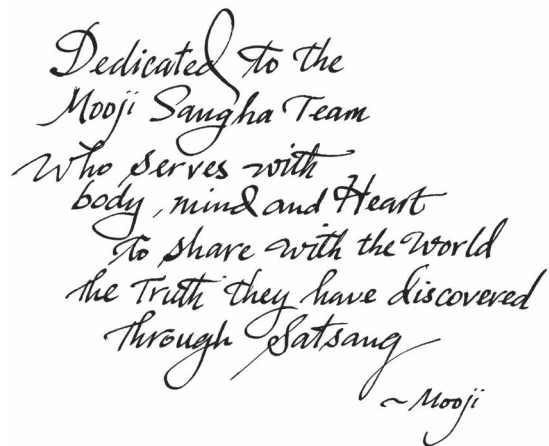 Dedicated to the
Mooji Sangha Team
Who serves with
body, mind and Heart
to share with the World
the Truth they have discovered
through Satsang
~ Mooji